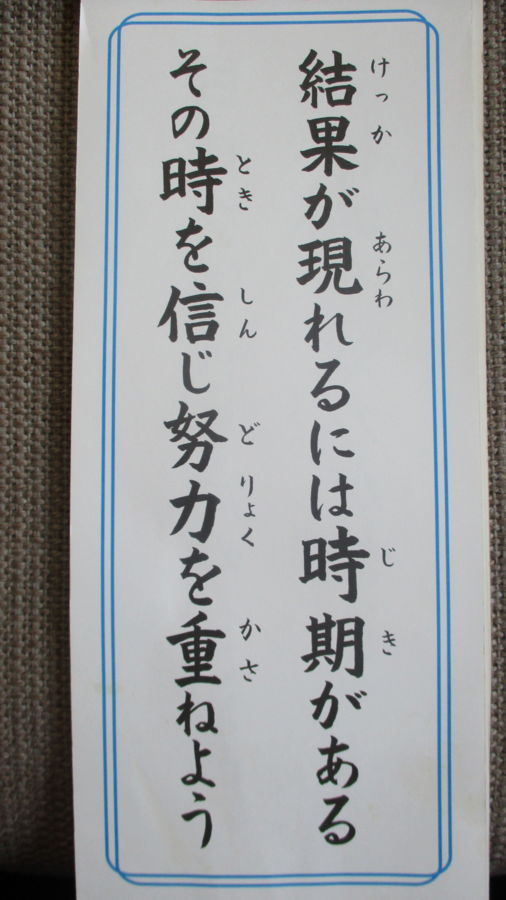 結果が現れるには時期がある
けっか あらわ じき
その時を信じ努力を重ねよう
とき しん どりょく かさ